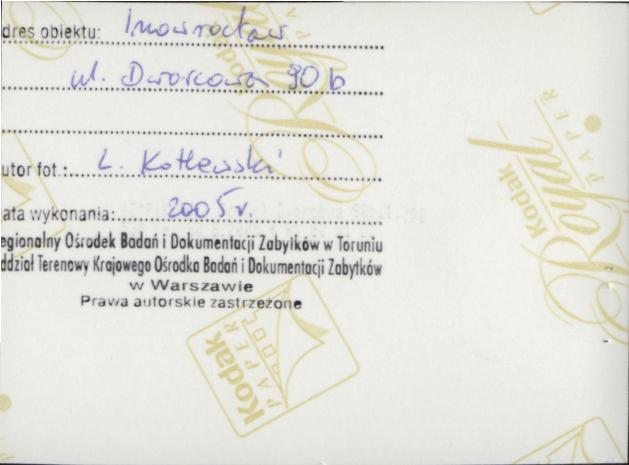 dres obiektu: Inowrocław
ul. Dworcowa 90 b
utor fot.: L. Kotlewski
ata wykonania: 2005 r.
egionalny Ośrodek Badań i Dokumentacji Zabytków w Toruniu
ddział Terenowy Krajowego Ośrodka Badań i Dokumentacji Zabytków
w Warszawie
Prawa autorskie zastrzeżone
Kodak
Royal
PAPER
Kodak
Royal
PAPER
Kodak
PAPER